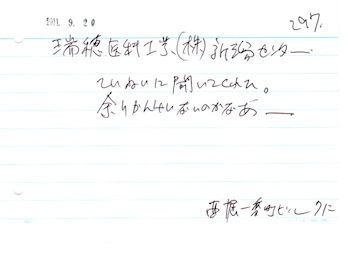 2011. 9. 20
297.
瑞穂医科工業(株)新潟センター.
ていねいに聞いてくれた。
余りかんけいないのかなあー
西堀一番町ビル